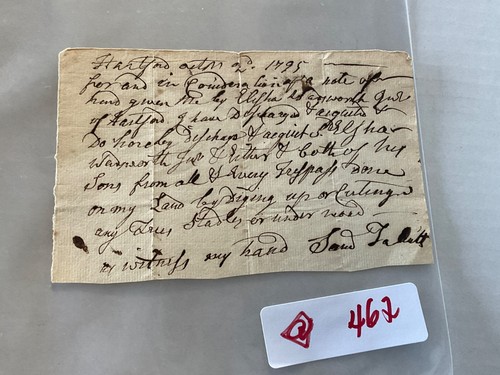 Hartford octor 2d. 1795
for and in Consideration of a note of
hand given me by Elisha Wadsworth Junr
of Hartford I have Discharg'd & acquitted &
Do hereby Discharge & acquit sd Elisha
Wadsworth Junr & Either & both of his
Sons from all & Every Trespass Done
on my Land by Diging up or Cuting
any Trees Stadles or under wood
in witness my hand Saml Talcott
@ 462